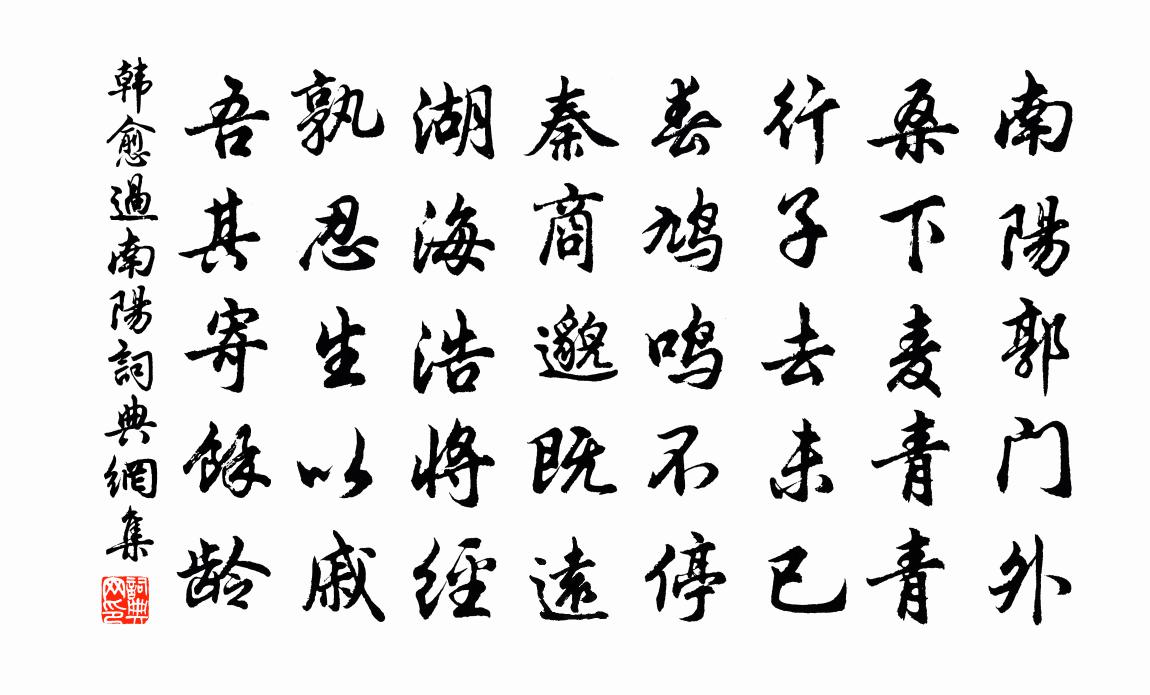 南陽郭门外
桑下麦青青
行子去未已
春鳩鸣不停
秦商邈既遠
湖海浩将經
孰忍生以戚
吾其寄餘龄
韩愈過南陽詞典網集
詞典网印